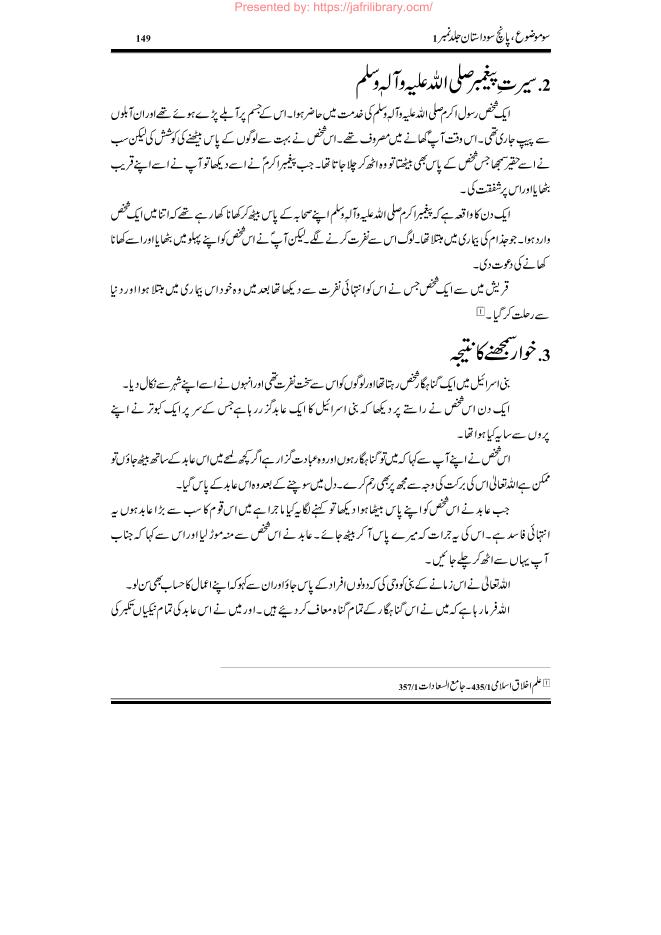 Presented by: https://jafrilibrary.ocm/
سو موضوع، پانچ سو داستان جلد نمبر 1
149
2. سیرتِ پیغمبر صلی اللہ علیہ وآلہٖ وسلم
ایک شخص رسول اکرم صلی اللہ علیہ وآلہٖ وسلم کی خدمت میں حاضر ہوا۔ اس کے جسم پر آبلے پڑے ہوئے تھے اور ان آبلوں
سے پیپ جاری تھی۔ اس وقت آپؐ کھانے میں مصروف تھے۔ اس شخص نے بہت سے لوگوں کے پاس بیٹھنے کی کوشش کی لیکن سب
نے اسے حقیر سمجھا جس شخص کے پاس بھی بیٹھتا تو وہ اٹھ کر چلا جاتا تھا۔ جب پیغمبر اکرمؐ نے اسے دیکھا تو آپ نے اسے اپنے قریب
بٹھایا اور اس پر شفقت کی۔
ایک دن کا واقعہ ہے کہ پیغمبر اکرم صلی اللہ علیہ وآلہٖ وسلم اپنے صحابہ کے پاس بیٹھ کر کھانا کھا رہے تھے کہ اتنا میں ایک شخص
وارد ہوا۔ جو جذام کی بیماری میں مبتلا تھا۔ لوگ اس سے نفرت کرنے لگے۔ لیکن آپؐ نے اس شخص کو اپنے پہلو میں بٹھایا اور اسے کھانا
کھانے کی دعوت دی۔
قریش میں سے ایک شخص جس نے اس کو انتہائی نفرت سے دیکھا تھا بعد میں وہ خود اس بیماری میں مبتلا ہوا اور دنیا
سے رحلت کر گیا۔ [1]
3. خوار سمجھنے کا نتیجہ
بنی اسرائیل میں ایک گناہگار شخص رہتا تھا اور لوگوں کو اس سے سخت نفرت تھی اور انہوں نے اسے اپنے شہر سے نکال دیا۔
ایک دن اس شخص نے راستے پر دیکھا کہ بنی اسرائیل کا ایک عابد گزر رہا ہے جس کے سر پر ایک کبوتر نے اپنے
پروں سے سایہ کیا ہوا تھا۔
اس شخص نے اپنے آپ سے کہا کہ میں تو گناہگار ہوں اور وہ عبادت گزار ہے اگر کچھ لمحے میں اس عابد کے ساتھ بیٹھ جاؤں تو
ممکن ہے اللہ تعالیٰ اس کی برکت کی وجہ سے مجھ پر بھی رحم کرے۔ دل میں سوچنے کے بعد وہ اس عابد کے پاس گیا۔
جب عابد نے اس شخص کو اپنے پاس بیٹھا ہوا دیکھا تو کہنے لگا یہ کیا ماجرا ہے میں اس قوم کا سب سے بڑا عابد ہوں یہ
انتہائی فاسد ہے۔ اس کی یہ جرات کہ میرے پاس آ کر بیٹھ جائے۔ عابد نے اس شخص سے منہ موڑ لیا اور اس سے کہا کہ جناب
آپ یہاں سے اٹھ کر چلے جائیں۔
اللہ تعالیٰ نے اس زمانے کے نبی کو وحی کی کہ دونوں افراد کے پاس جاؤ اور ان سے کہو کہ اپنے اعمال کا حساب بھی سن لو۔
اللہ فرما رہا ہے کہ میں نے اس گناہگار کے تمام گناہ معاف کر دیئے ہیں۔ اور میں نے اس عابد کی تمام نیکیاں تکبر کی
[1] علم اخلاق اسلامی 435/1۔ جامع السعادات 357/1